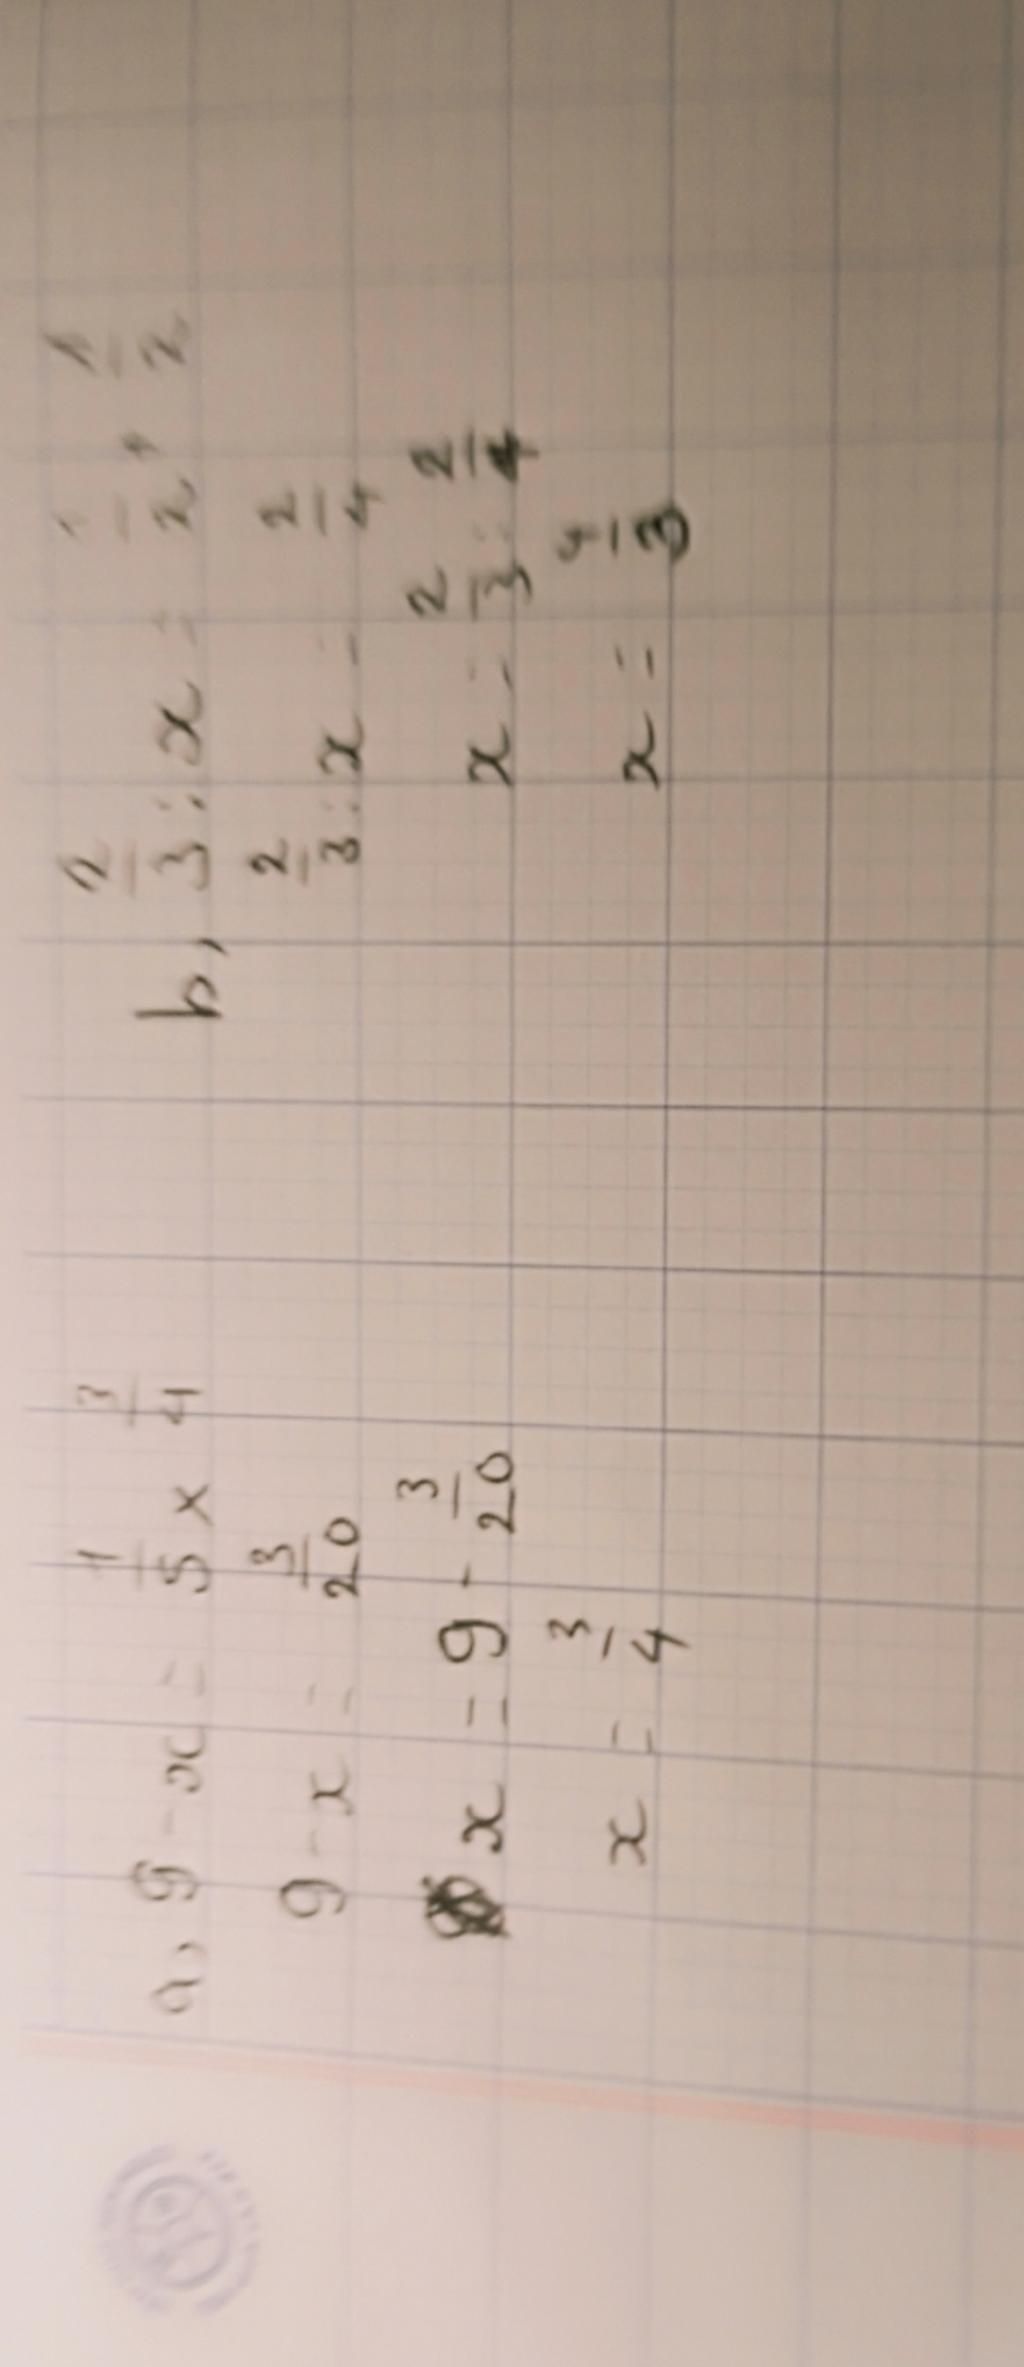 a, 9 - x = 1/5 x 3/4
9 - x = 3/20
x = 9 - 3/20
x = 3/4
b, 2/3 : x = 1/2 + 1/2
2/3 : x = 2/4
x = 2/3 : 2/4
x = 4/3